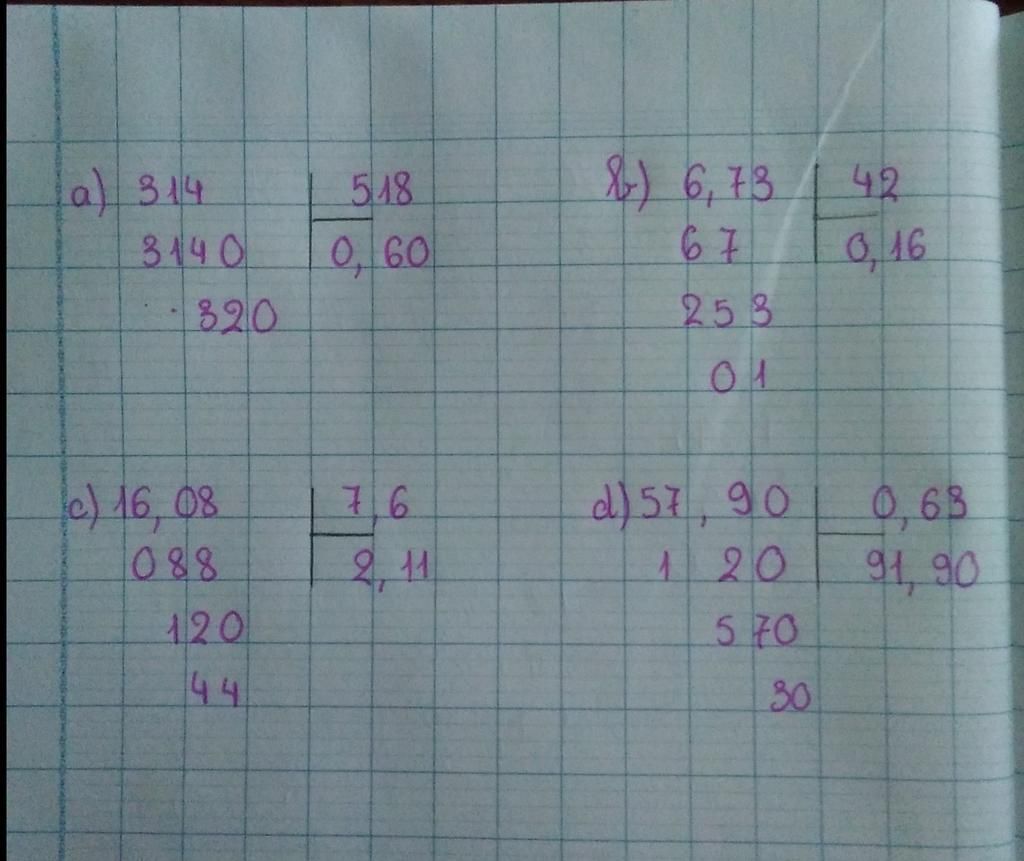 a) 314 518
3140 0,60
320
b) 6,73 42
67 0,16
253
01
c) 16,08 7,6
088 2,11
120
44
d) 57,90 0,63
1 20 91,90
570
30